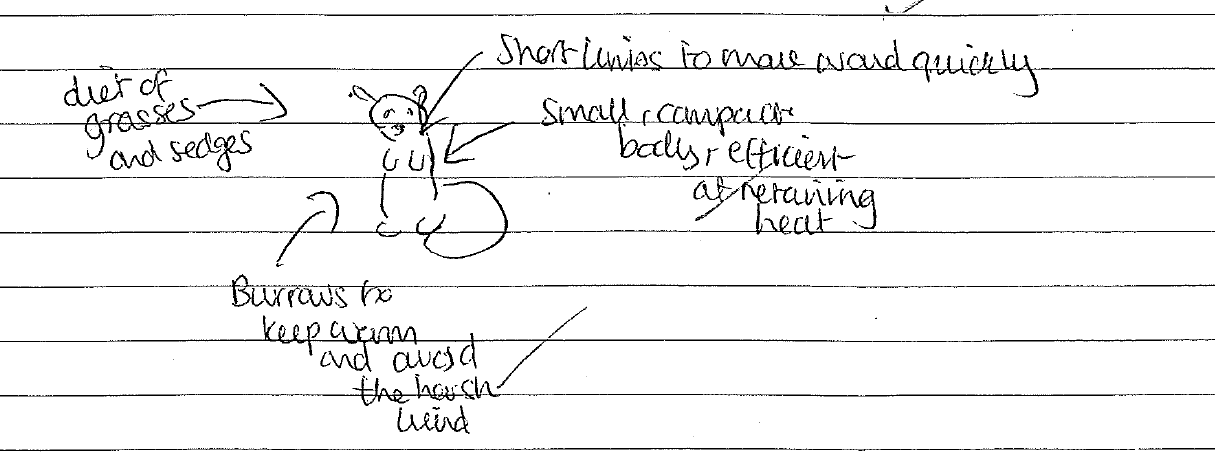 Short limbs to move around quickly
diet of
grasses
and sedges
Small, compact
body, efficient
at retaining
heat
Burrows to
keep warm
and avoid
the harsh
wind